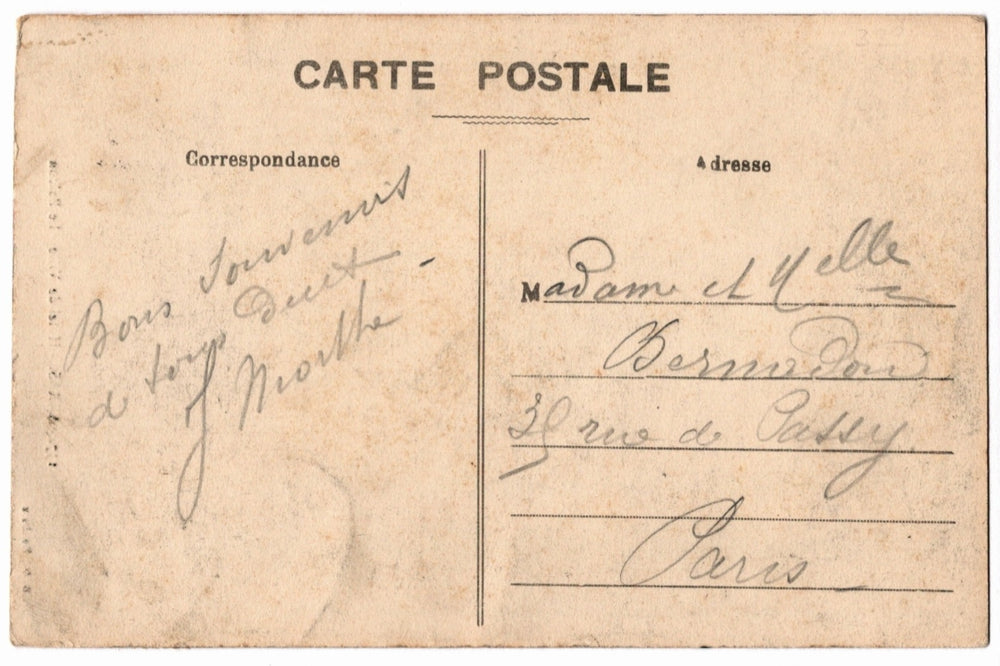 CARTE POSTALE
Correspondance
Bons Souvenirs
a tous
Marthe
Adresse
Madame et Melle
Bernadou
rue de Passy
Paris